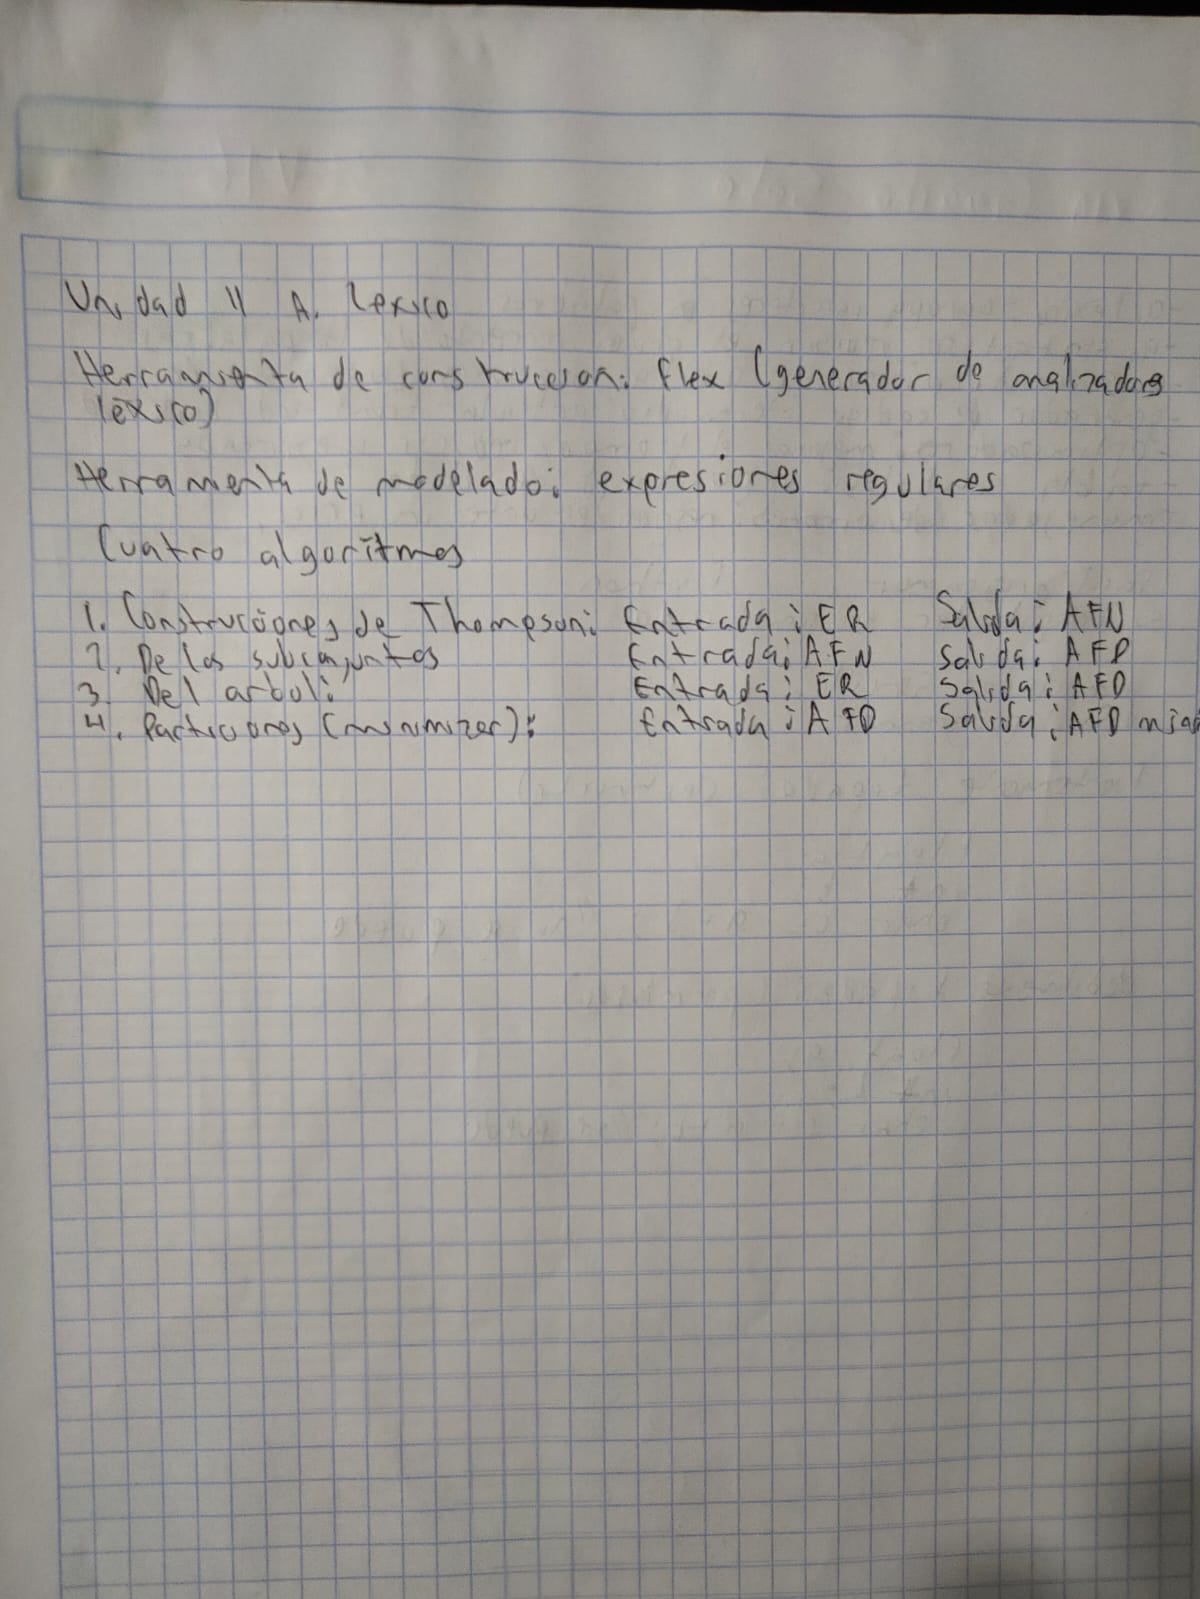 Unidad II A. Lexico
Herramienta de construccion: flex (generador de analizadores
lexico)
Herramienta de modelado: expresiones regulares
Cuatro algoritmos
1. Construcciones de Thompson: Entrada: ER Salida: AFN
2. De los subconjuntos Entrada: AFN Salida: AFD
3. Del arbol: Entrada: ER Salida: AFD
4. Particiones (minimizer): Entrada: AFD Salida: AFD